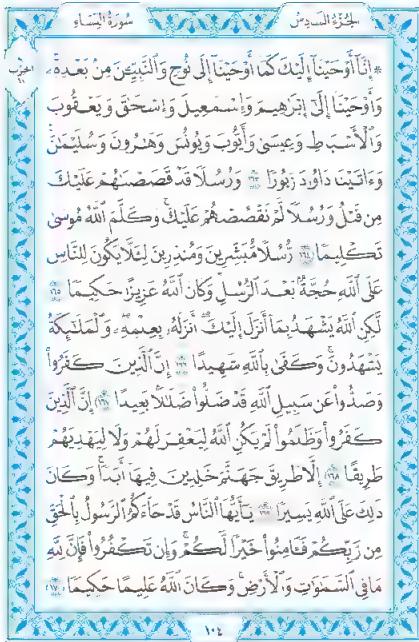 الجزء السادس
سورة النساء
الحزب
۞ إِنَّآ أَوْحَيْنَآ إِلَيْكَ كَمَآ أَوْحَيْنَآ إِلَىٰ نُوحٍ وَٱلنَّبِيِّـۧنَ مِنۢ بَعْدِهِۦۚ
وَأَوْحَيْنَآ إِلَىٰٓ إِبْرَٰهِيمَ وَإِسْمَٰعِيلَ وَإِسْحَٰقَ وَيَعْقُوبَ
وَٱلْأَسْبَاطِ وَعِيسَىٰ وَأَيُّوبَ وَيُونُسَ وَهَٰرُونَ وَسُلَيْمَٰنَۚ
وَءَاتَيْنَا دَاوُۥدَ زَبُورًا ١٦٣ وَرُسُلًا قَدْ قَصَصْنَٰهُمْ عَلَيْكَ
مِن قَبْلُ وَرُسُلًا لَّمْ نَقْصُصْهُمْ عَلَيْكَۚ وَكَلَّمَ ٱللَّهُ مُوسَىٰ
تَكْلِيمًا ١٦٤ رُّسُلًا مُّبَشِّرِينَ وَمُنذِرِينَ لِئَلَّا يَكُونَ لِلنَّاسِ
عَلَى ٱللَّهِ حُجَّةٌۢ بَعْدَ ٱلرُّسُلِۚ وَكَانَ ٱللَّهُ عَزِيزًا حَكِيمًا ١٦٥
لَّٰكِنِ ٱللَّهُ يَشْهَدُ بِمَآ أَنزَلَ إِلَيْكَۖ أَنزَلَهُۥ بِعِلْمِهِۦۖ وَٱلْمَلَٰٓئِكَةُ
يَشْهَدُونَۚ وَكَفَىٰ بِٱللَّهِ شَهِيدًا ١٦٦ إِنَّ ٱلَّذِينَ كَفَرُوا۟
وَصَدُّوا۟ عَن سَبِيلِ ٱللَّهِ قَدْ ضَلُّوا۟ ضَلَٰلًۢا بَعِيدًا ١٦٧ إِنَّ ٱلَّذِينَ
كَفَرُوا۟ وَظَلَمُوا۟ لَمْ يَكُنِ ٱللَّهُ لِيَغْفِرَ لَهُمْ وَلَا لِيَهْدِيَهُمْ
طَرِيقًا ١٦٨ إِلَّا طَرِيقَ جَهَنَّمَ خَٰلِدِينَ فِيهَآ أَبَدًاۚ وَكَانَ
ذَٰلِكَ عَلَى ٱللَّهِ يَسِيرًا ١٦٩ يَٰٓأَيُّهَا ٱلنَّاسُ قَدْ جَآءَكُمُ ٱلرَّسُولُ بِٱلْحَقِّ
مِن رَّبِّكُمْ فَـَٔامِنُوا۟ خَيْرًا لَّكُمْۚ وَإِن تَكْفُرُوا۟ فَإِنَّ لِلَّهِ
مَا فِى ٱلسَّمَٰوَٰتِ وَٱلْأَرْضِۚ وَكَانَ ٱللَّهُ عَلِيمًا حَكِيمًا ١٧٠
١٠٤